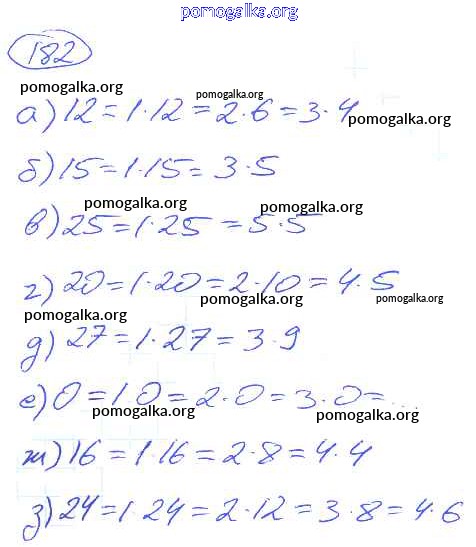 pomogalka.org
182
pomogalka.org pomogalka.org
а) 12 = 1·12 = 2·6 = 3·4
pomogalka.org
б) 15 = 1·15 = 3·5
pomogalka.org pomogalka.org
в) 25 = 1·25 = 5·5
г) 20 = 1·20 = 2·10 = 4·5
pomogalka.org pomogalka.org
pomogalka.org
д) 27 = 1·27 = 3·9
е) 0 = 1·0 = 2·0 = 3·0 = ...
pomogalka.org pomogalka.org
ж) 16 = 1·16 = 2·8 = 4·4
з) 24 = 1·24 = 2·12 = 3·8 = 4·6